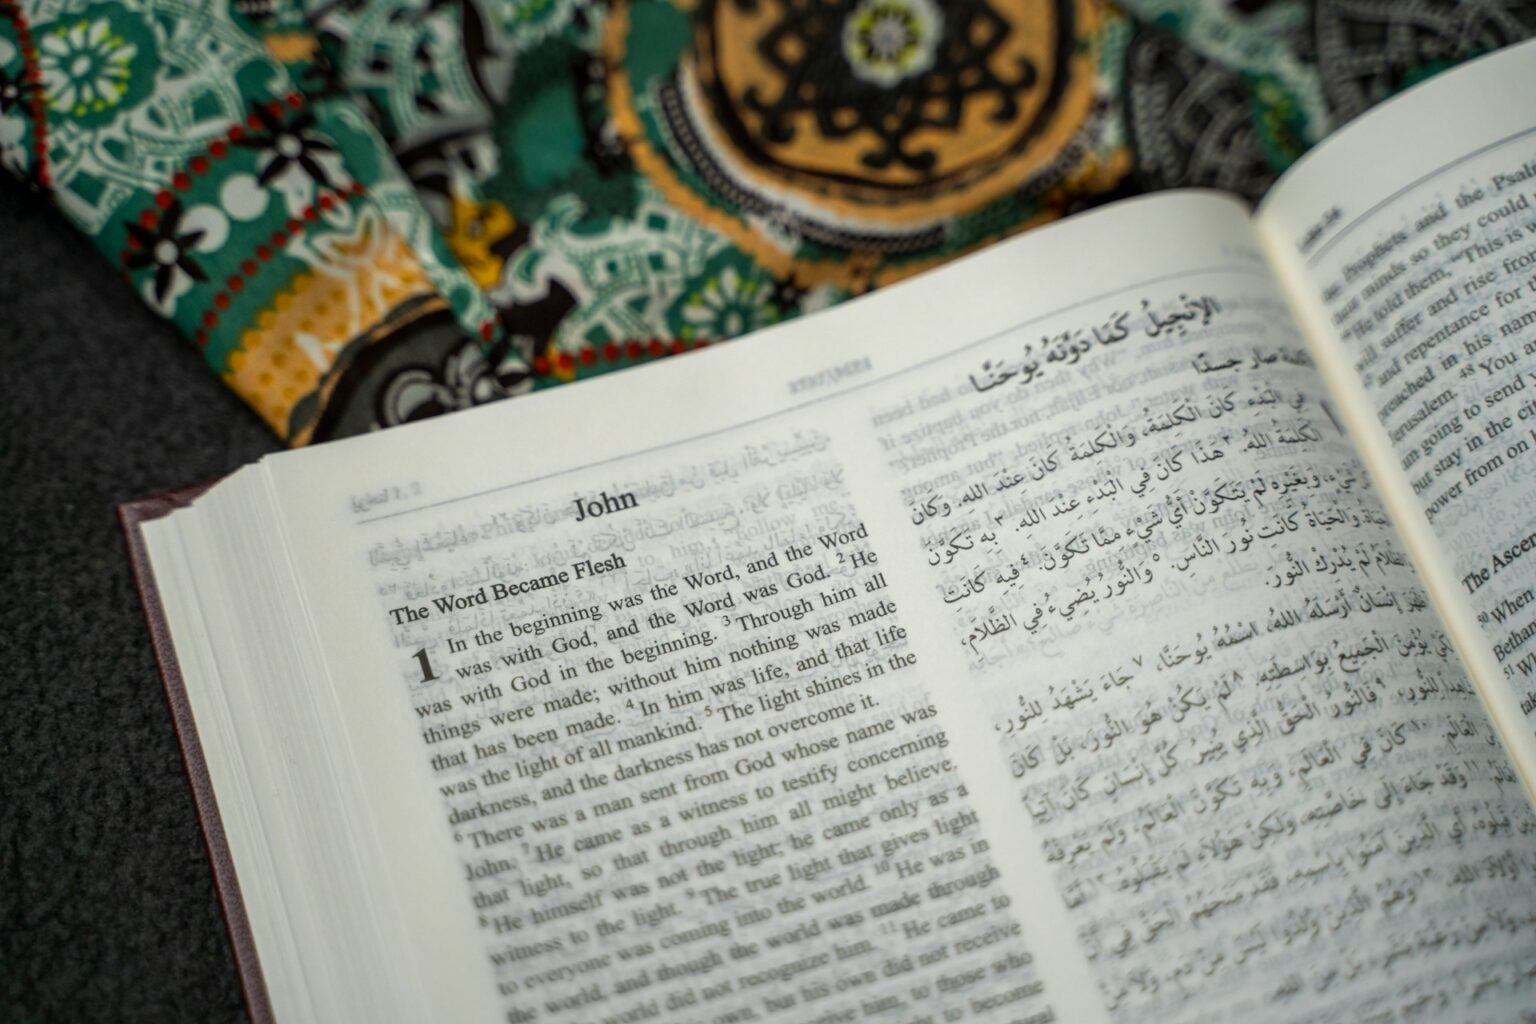 John
The Word Became Flesh
1 In the beginning was the Word, and the Word
was with God, and the Word was God. 2 He
was with God in the beginning. 3 Through him all
things were made; without him nothing was made
that has been made. 4 In him was life, and that life
was the light of all mankind. 5 The light shines in the
darkness, and the darkness has not overcome it.
6 There was a man sent from God whose name was
John. 7 He came as a witness to testify concerning
that light, so that through him all might believe.
8 He himself was not the light; he came only as a
witness to the light. 9 The true light that gives light
to everyone was coming into the world. 10 He was in
the world, and though the world was made through
world did not recognize him. 11 He came to
own, but his own did not receive
receive him, to those who
to become
الإنْجِيلُ كَمَا دَوَّنَهُ يُوحَنَّا
صار جسدًا
فِي الْبَدْءِ كَانَ الْكَلِمَةُ، وَالْكَلِمَةُ كَانَ عِنْدَ اللهِ. وَكَانَ
الْكَلِمَةُ اللهَ. ٢ هَذَا كَانَ فِي الْبَدْءِ عِنْدَ اللهِ. ٣ بِهِ تَكَوَّنَ
شَيْءٍ، وَبِغَيْرِهِ لَمْ يَتَكَوَّنْ أَيُّ شَيْءٍ مِمَّا تَكَوَّنَ. ٤ فِيهِ كَانَتِ
وَالْحَيَاةُ كَانَتْ نُورَ النَّاسِ. ٥ وَالنُّورُ يُضِيءُ فِي الظَّلَامِ،
لَمْ يُدْرِكِ النُّورَ.
إِنْسَانٌ أَرْسَلَهُ اللهُ، اسْمُهُ يُوحَنَّا، ٧ جَاءَ يَشْهَدُ لِلنُّورِ،
يُؤْمِنَ الْجَمِيعُ بِوَاسِطَتِهِ. ٨ لَمْ يَكُنْ هُوَ النُّورَ، بَلْ كَانَ
لِلنُّورِ. ٩ فَالنُّورُ الْحَقُّ الَّذِي يُنِيرُ كُلَّ إِنْسَانٍ كَانَ آتِيًا
الْعَالَمِ. ١٠ كَانَ فِي الْعَالَمِ، وَبِهِ تَكَوَّنَ الْعَالَمُ، وَلَمْ يَعْرِفْهُ
١١ وَقَدْ جَاءَ إِلَى خَاصَّتِهِ، وَلَكِنَّ هَؤُلَاءِ لَمْ يَقْبَلُوهُ. ١٢ أَمَّا
أَيِ الَّذِينَ آمَنُوا بِاسْمِهِ، فَقَدْ مَنَحَهُمُ الْحَقَّ فِي أَنْ
اللهِ، ١٣ وَهُمُ الَّذِينَ وُلِدُوا لَيْسَ مِنْ دَمٍ، وَلَا مِنْ
Prophets and the
minds so they could
He told them, "This is
will suffer and rise from
and repentance for
preached in his name
48 You
am going to send
but stay in the city
power from on
The
50 When
51